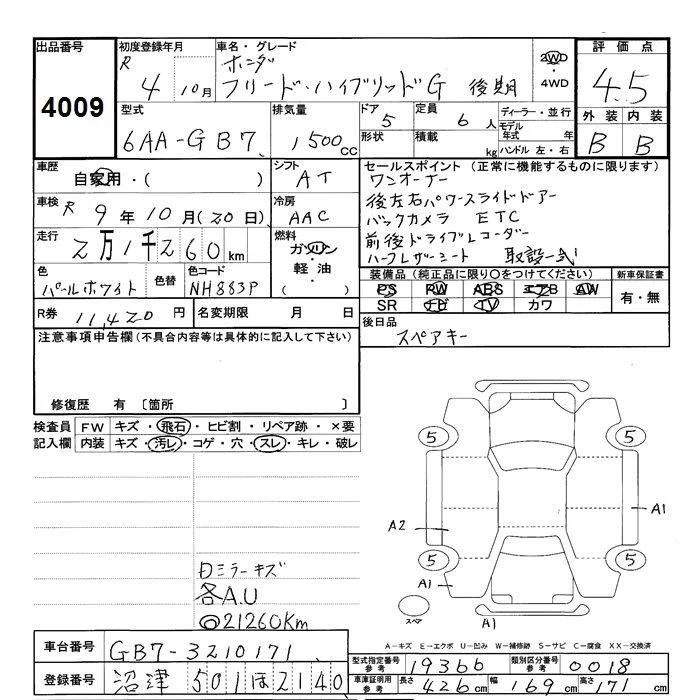 出品番号 4009
初度登録年月 R 4 10月
車名・グレード ホンダ フリード・ハイブリッドG 後期
2WD ・ 4WD
評価点 4.5
外装 内装
B B
型式 6AA-GB7
排気量 1500cc
ドア 5
形状
定員 6人
積載 kg
ディーラー・並行
モデル年式 年
ハンドル 左・右
車歴 自家用・( )
シフト AT
車検 R 9年10月(20日)
冷房 AAC
走行 2万1千260km
燃料 ガソリン・軽油・( )
色 パールホワイト
色替
色コード NH883P
R券 11,420円
名変期限 月 日
セールスポイント(正常に機能するものに限ります)
ワンオーナー
後左右パワースライドドアー
バックカメラ ETC
前後ドライブレコーダー
ハーフレザーシート 取説一式
装備品(純正品に限り○をつけてください)
新車保証書
PS PW ABS エアB AW
SR ナビ TV カワ
有・無
後日品
スペアキー
注意事項申告欄(不具合内容等は具体的に記入して下さい)
修復歴 有 〔箇所 〕
検査員記入欄
FW キズ・飛石・ヒビ割・リペア跡・×要
内装 キズ・汚レ・コゲ・穴・スレ・キレ・破レ
5 5
A2 A1
5 5
A1
スペア
A1
ミラーキズ
各A.U
◎21260Km
A-キズ E-エクボ U-凹み W-補修跡 S-サビ C-腐食 XX-交換済
車台番号 GB7-3210171
登録番号 沼津 501 ほ 2140
型式指定番号 参考 19366
類別区分番号 参考 0018
車庫証明用 参考 長さ 426cm 幅 169cm 高さ 171cm